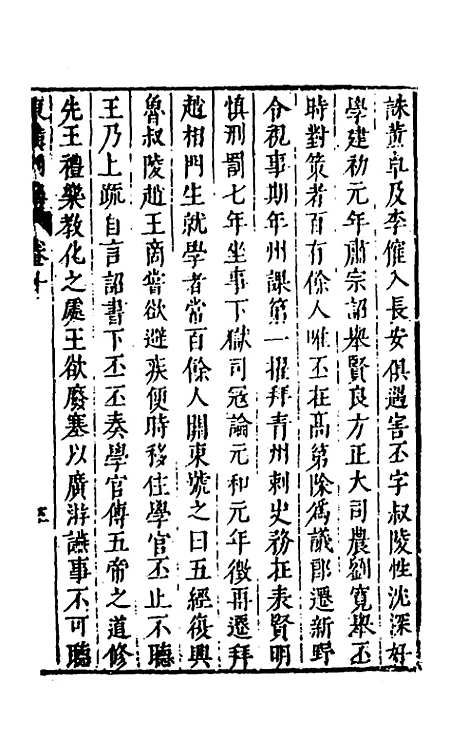 誅黃卓及李傕入長安俱遇害丕字叔陵性沈深好
學建初元年肅宗詔舉賢良方正大司農劉寬舉丕
時對策者百有餘人唯丕在高第除為議郎遷新野
令視事期年州課第一擢拜青州刺史務在表賢明
慎刑罰七年坐事下獄司寇論元和元年徵再遷拜
趙相門生就學者常百餘人關東號之曰五經復興
魯叔陵趙王商嘗欲避疾便時移住學官丕止不聽
王乃上疏自言詔書下丕丕奏學官傳五帝之道修
先王禮樂教化之處王欲廢塞以廣游讌事不可聽
卷十